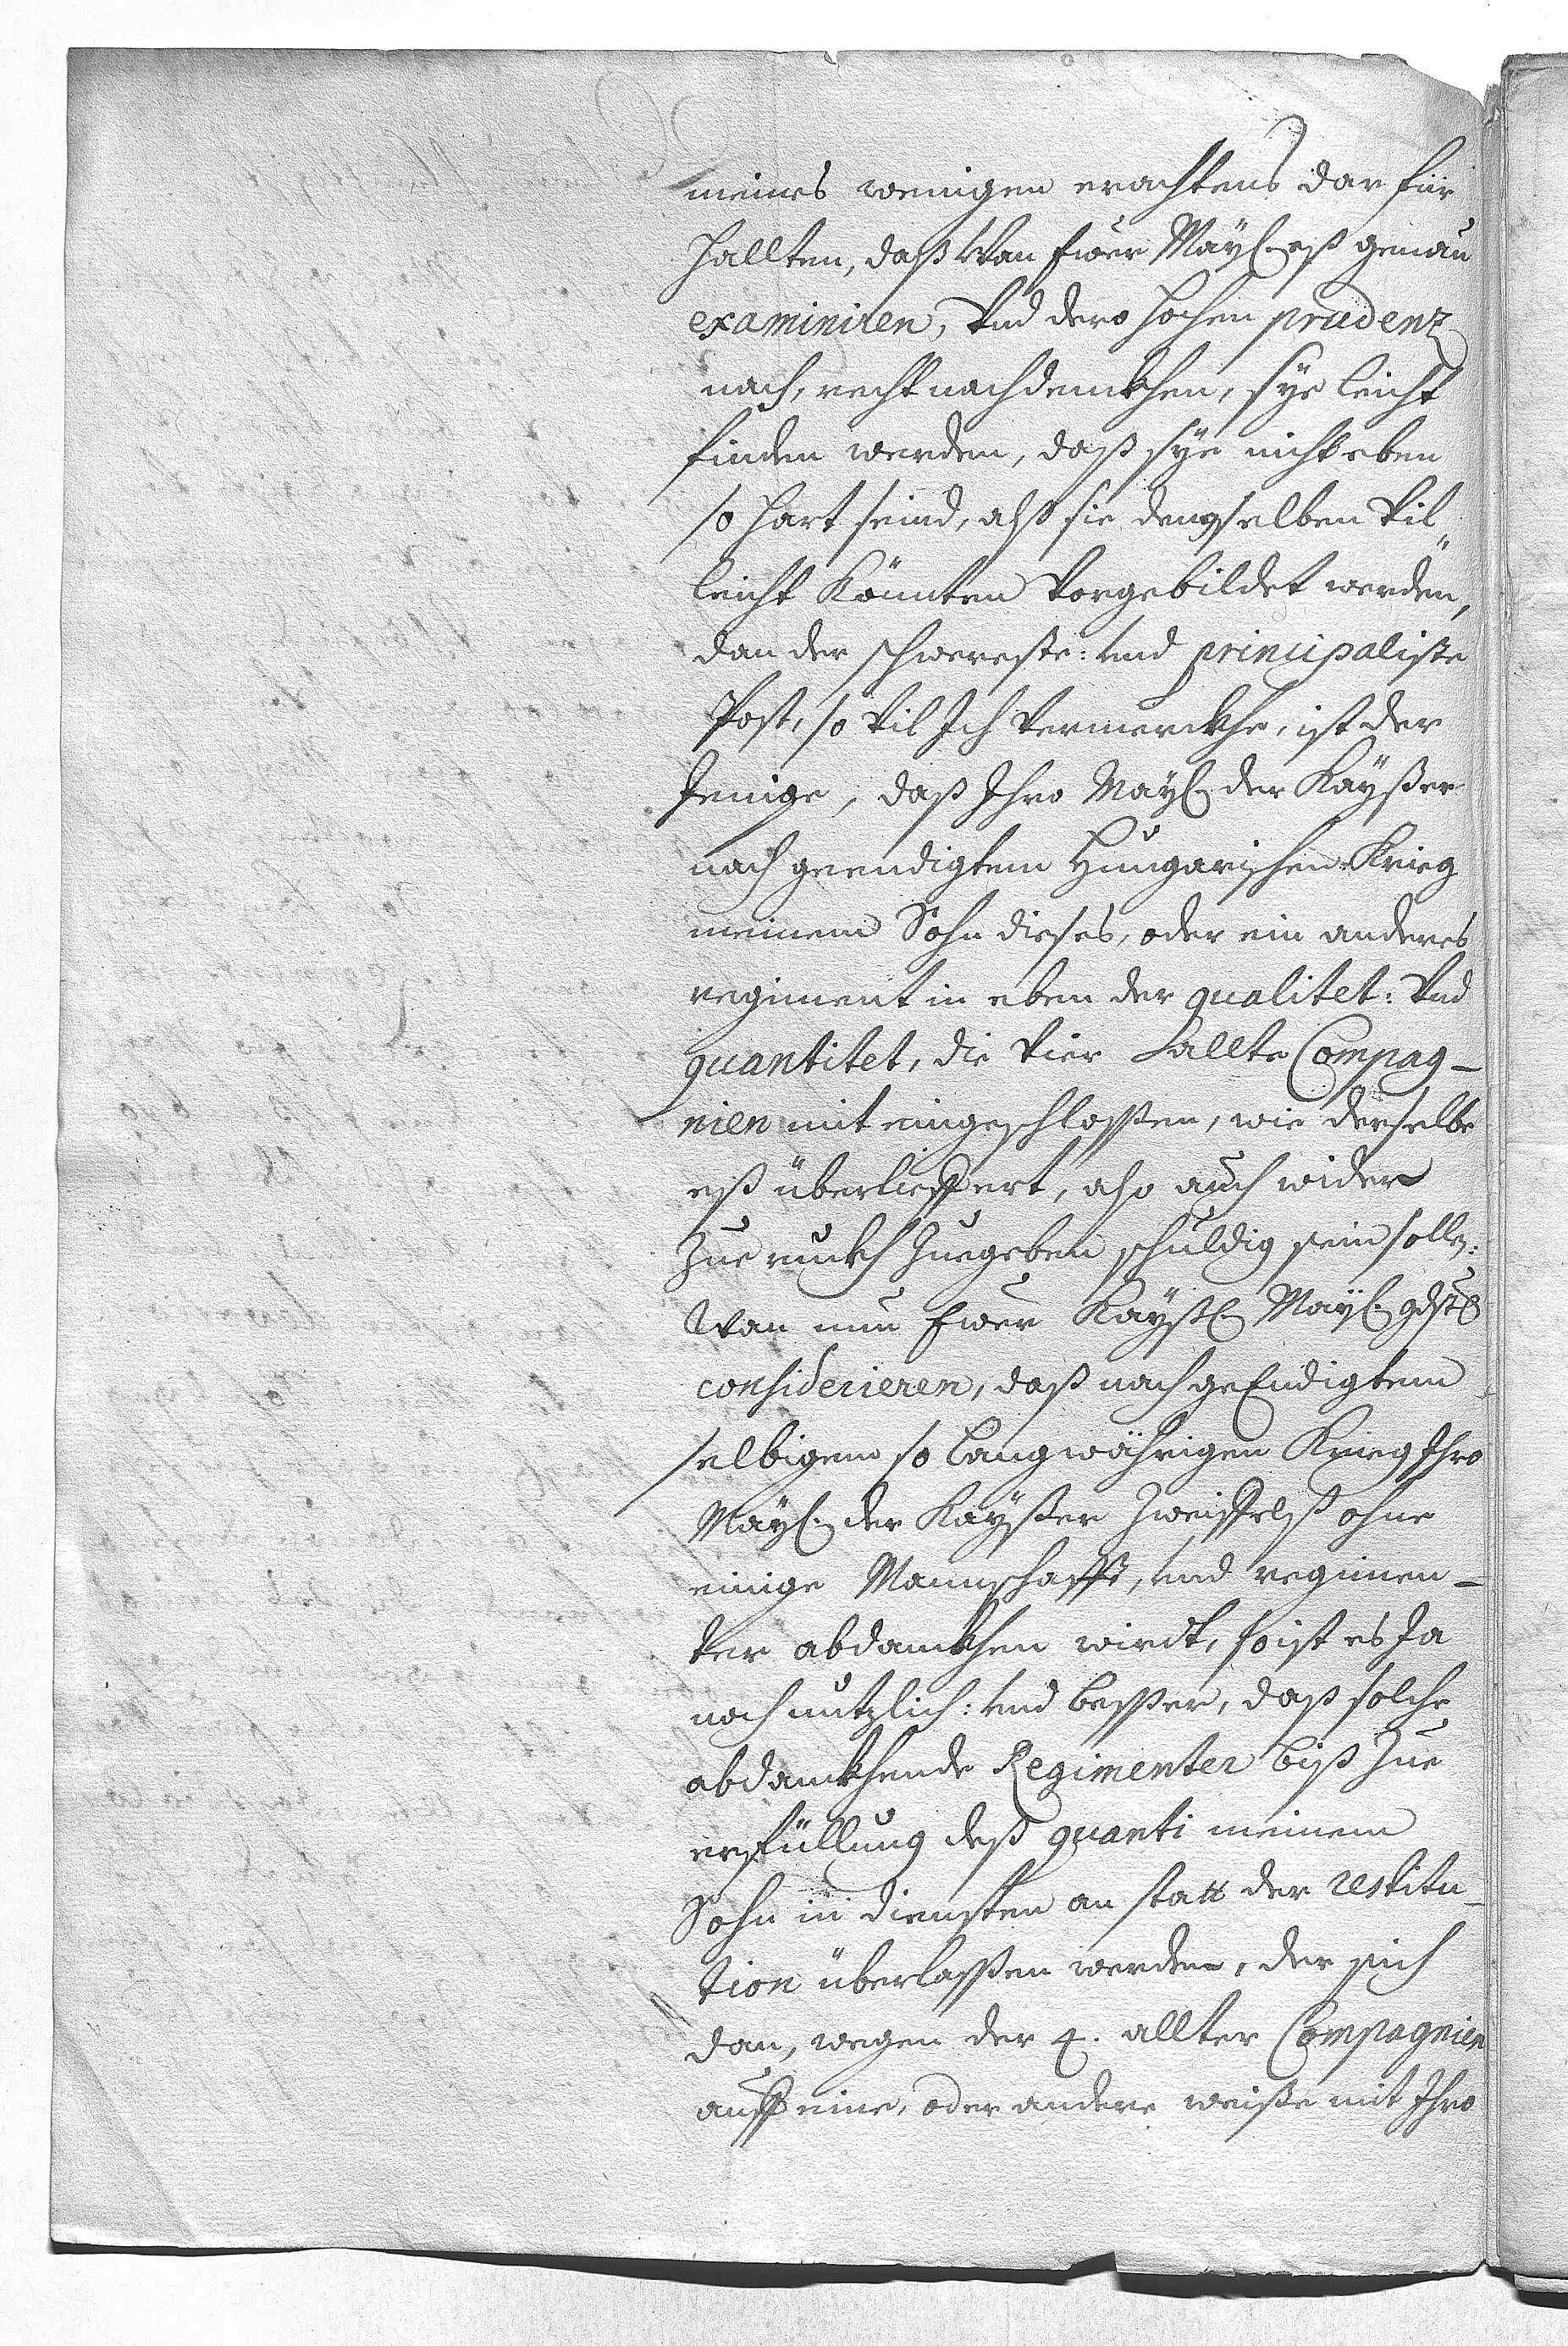 meines wenigen erachtens dar für
hallten, daß Wan Ewer Mayl. eß genau
examiniren, Vnd dero hohen prudenz
nach, recht nachdenckhen, sye leicht
finden werden, daß sye nicht eben
so hart seind, alß sie demselben Vil„
leicht könnten Vorgebildet werden,
dan der schwereste: und principaliste
Post, so Vil Ich Vermerckhe, ist der
Jenige, daß Ihro Mayl. der Kayßer
nach geendigtem Hungarischen Krieg
meinem Sohn dieses, oder ein anderes
regiment in eben der qualitet: Vnd
quantitet, die Vier allte Compag-
nien mit eingeschlossen, wie derselbe
eß überlieffert, also auch wider
Zue ruckh Zuegeben schuldig sein solle:
Wan nun Ewer Kayßl. Mayl.
considerieren, daß nach geEndigtem
selbigem so langwährigen Krieg Ihro
Mayl. der Kayßer Zweiffelß ohne
einige Mannschafft, und regimen-
ter abdanckhen wirdt, so ist es Ja
noch nutzlich: und besser, daß solche
abdanckhende Regimenter biß Zue
erfüllung deß quanti meinem
Sohn in diensten an statt der restitu-
tion überlassen werden, der sich
dan, wegen der 4. allter Compagnien
auff eine, oder andere weiße mit Ihro